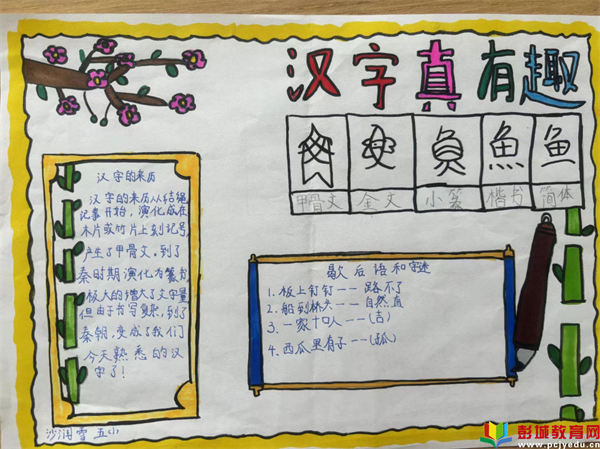 汉字真有趣
甲骨文 金文 小篆 楷书 简体
魚 鱼
汉字的来历
汉字的来历从结绳
记事开始，演化成在
木片或竹片上刻记号，
产生了甲骨文，到了
秦时期演化为篆书
极大的增大了文字量
但由于书写复杂，到了
秦朝，变成了我们
今天熟悉的汉
字了！
歇后语和字谜
1. 板上钉钉——跑不了
2. 船到桥头——自然直
3. 一家十口人——(吉)
4. 西瓜里有子——(孤)
五小
彭城教育网
www.pcjyedu.cn